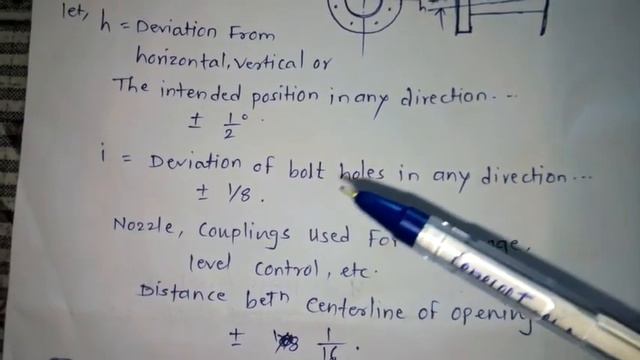 let, h = Deviation From
h
horizontal, vertical or
The intended position in any direction...
± 1/2°.
i = Deviation of bolt holes in any direction...
± 1/8.
Nozzle, Couplings used For
level control, etc.
Distance betn Centerline of opening
± 1/16.